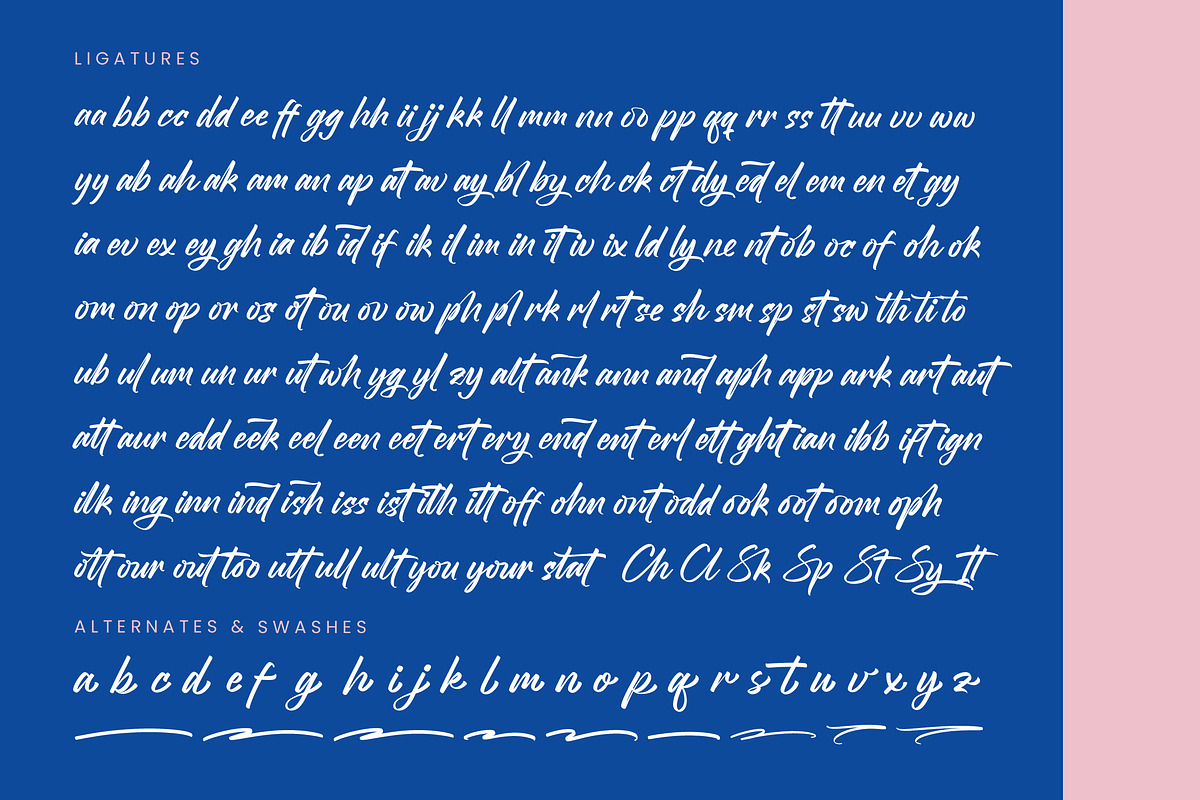 LIGATURES
aa bb cc dd ee ff gg hh ii jj kk ll mm nn oo pp qq rr ss tt uu vv ww
yy ab ah ak am an ap at av ay bl by ch ck ct dy ed el em en et gy
ia ev ex ey gh ia ib id if ik il im in it iv ix ld ly ne nt ob oc of oh ok
om on op or os ot ou ov ow ph pl rk rl rt se sh sm sp st sw th ti to
ub ul um un ur ut wh yg yl zy alt ank ann and aph app ark art aut
att aur edd eek eel een eet ert ery end ent erl ett ght ian ibb ift ign
ilk ing inn ind ish iss ist ith itt off ohn ont odd ook oot oom oph
ott our out too utt ull ult you your stat Ch Cl Sk Sp St Sy It
ALTERNATES & SWASHES
a b c d e f g h i j k l m n o p q r s t u v x y z